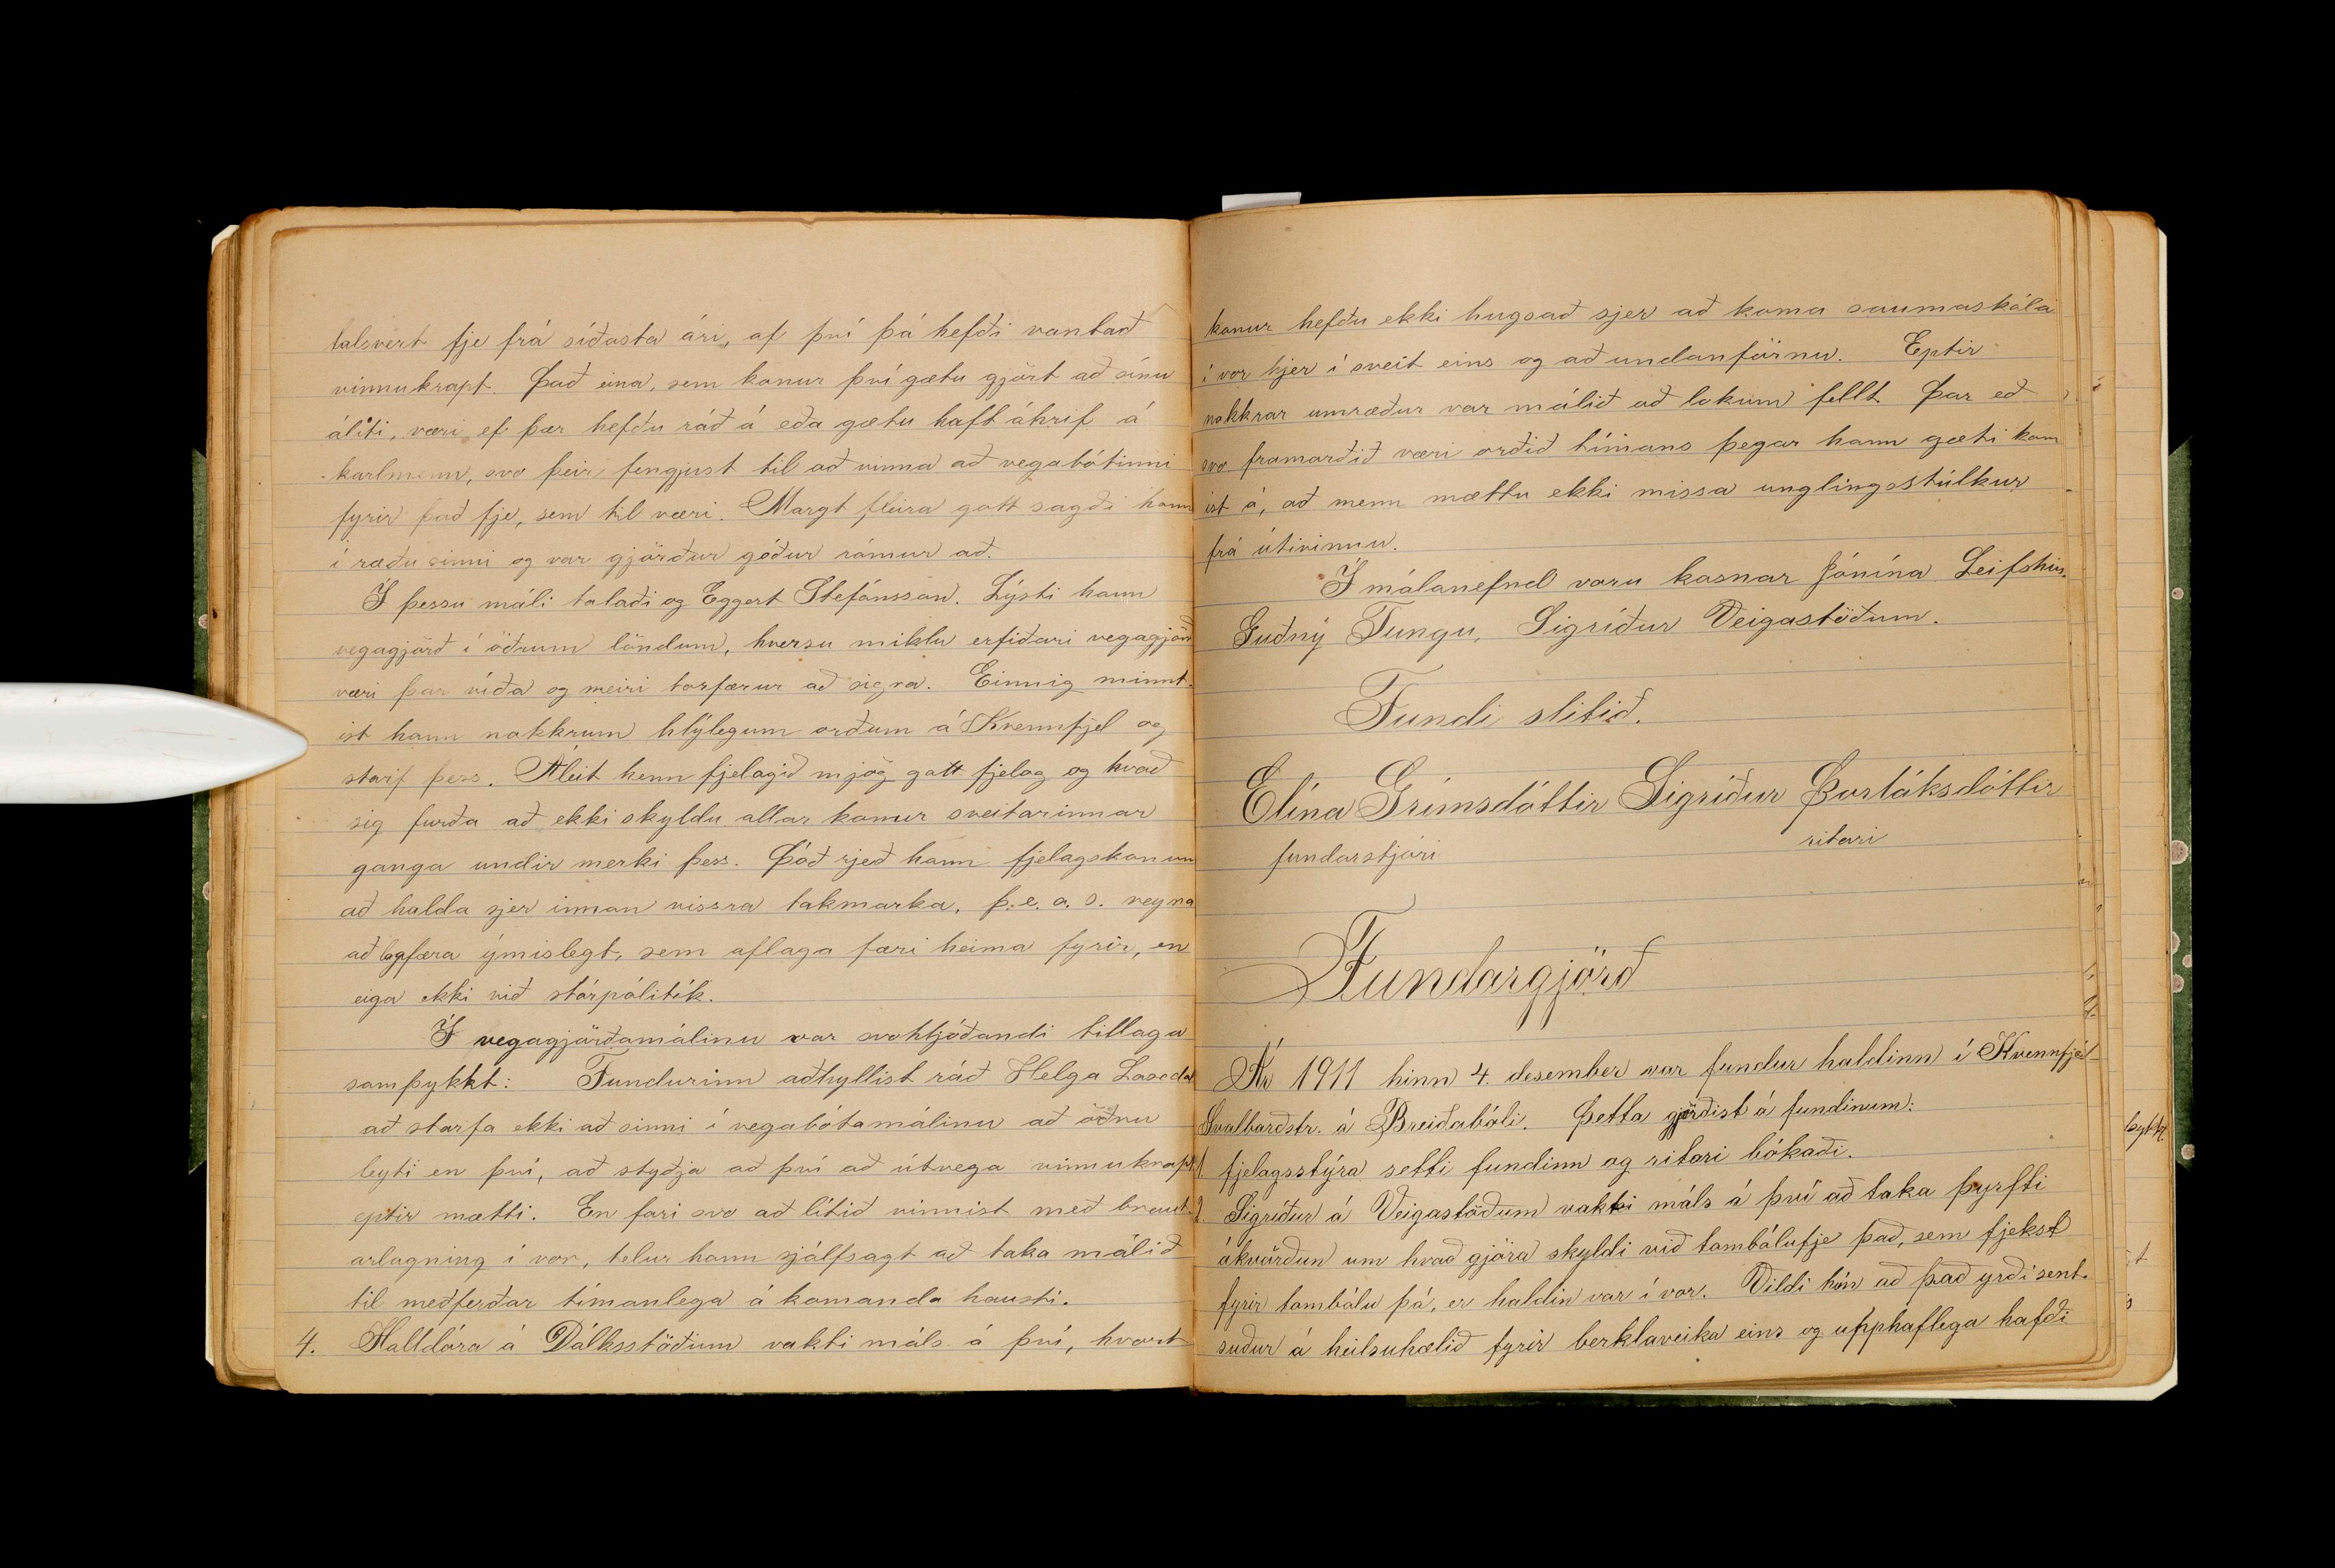 talsvert fje frá síðasta ári, af því þá hefði vantað
vinnukrapt. Það eina, sem konur því gætu gjört að sínu
áliti, væri ef þær hefðu ráð á eða gætu haft áhrif á
karlmenn, svo þeir fengjust til að vinna að vegabótinni
fyrir það fje, sem til væri. Margt fleira gott sagði hann
í ræðu sinni og var gjörður góður rómur að.
Í þessu máli talaði og Eggert Stefánsson. Lýsti hann
vegagjörð í öðrum löndum, hversu miklu erfiðari vegagjörð
væri þar víða og meiri torfærur að sigra. Einnig minnt-
ist hann nokkrum hlýlegum orðum á Kvennfjel og
starf þess. Áleit hann fjelagið mjög gott fjelag og kvað
sig furða að ekki skyldu allar konur sveitarinnar
ganga undir merki þess. Þóð rjeð hann fjelagskonum
að halda sjer innan vissra takmarka, þ.e.a.s. reyna
að lagfæra ýmislegt, sem aflaga færi heima fyrir, en
eiga ekki við stórpólitík.
Í vegagjörðamálinu var svohljóðandi tillaga
samþykkt: Fundurinn aðhyllist ráð Helga Laxdal
að starfa ekki að sinni í vegabótamálinu að öðru
leyti en því, að styðja að því að útvega vinnukrapt
eptir mætti. En fari svo að lítið vinnist með braut-
arlagning í vor, telur hann sjálfsagt að taka málið
til meðferðar tímanlega á komanda hausti.
4. Halldóra á Dálksstöðum vakti máls á því, hvort
konur hefðu ekki hugsað sjer að koma saumaskóla
í vor hjer í sveit eins og að undanförnu. Eptir
nokkrar umræður var málið að lokum fellt. Þar eð
svo framorðið væri orðið tímans þegar hann gæti kom
ist á, að menn mættu ekki missa unglingsstúlkur
frá útivinnu.
Í málanefnd voru kosnar Jónína Leifshús.
Guðný Tungu, Sigríður Veigastöðum.
Fundi slitið.
Elína Grímsdóttir Sigríður Þorláksdóttir
fundarstjóri ritari
Fundargjörð
Ár 1911 hinn 4. desember var fundur haldinn í Kvennfjel
Svalbarðstr. á Breiðabóli. Þetta gjörðist á fundinum:
1 fjelagsstýra setti fundinn og ritari bókaði.
2. Sigríður á Veigastöðum vakti máls á því að taka þyrfti
ákvörðun um hvað gjöra skyldi við tombólufje það, sem fjekst
fyrir tombólu þá, er haldin var í vor. Vildi hón að það yrði sent
suður á heilsuhælið fyrir berklaveika eins og upphaflega hafði